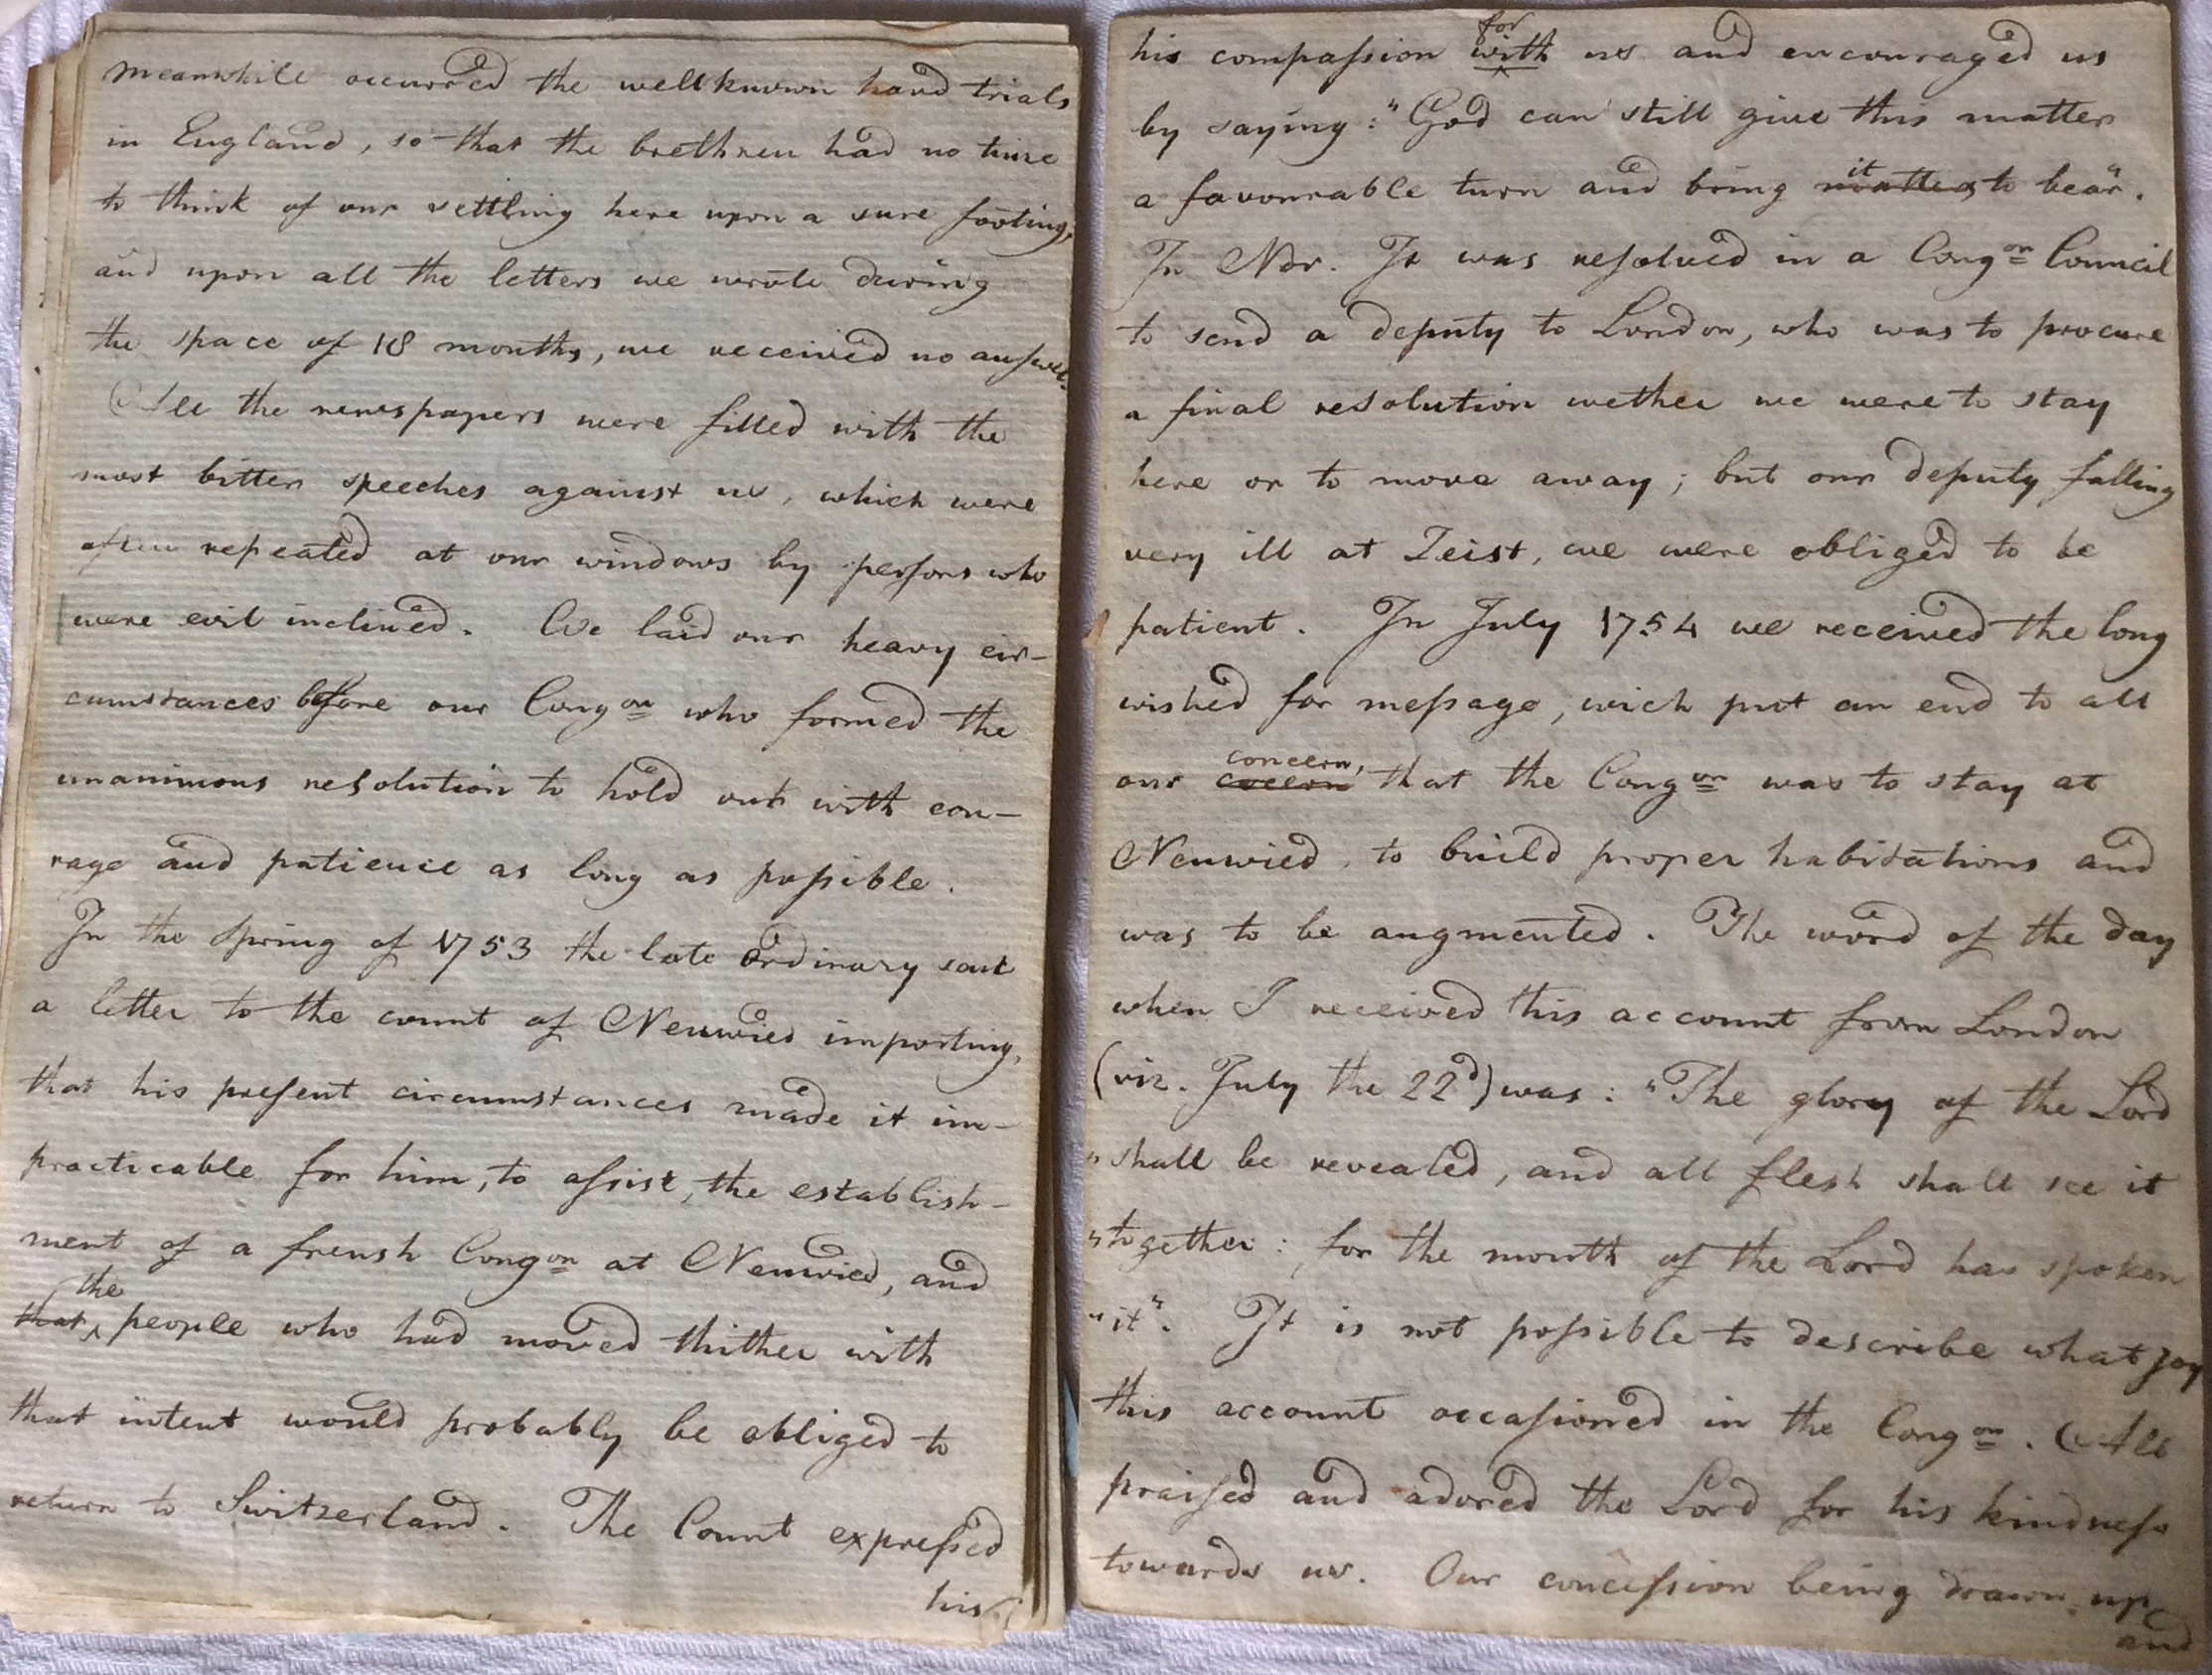 meanwhile occurred the wellknown hard trials
in England, so that the brethren had no time
to think of our settling here upon a sure footing,
and upon all the letters we wrote during
the space of 18 months, we received no answer.
All the newspapers were filled with the
most bitter speeches against us, which were
often repeated at our windows by persons who
were evil inclined. We laid our heavy cir-
cumstances before our Congon who formed the
unanimous resolution to hold out with cou-
rage and patience as long as possible.
In the Spring of 1753 the late Ordinary sent
a letter to the count of Neuwied importing,
that his present circumstances made it im-
practicable for him, to assist, the establish-
ment of a frensh Congon at Neuwied, and
the
that people who had moved thither with
that intent would probably be obliged to
return to Switzerland. The Count expressed
his
for
his compassion with us and encouraged us
by saying: "God can still give this matter
it
a favourable turn and bring matters to bear".
In Nov. It was resolved in a Congon Council
to send a deputy to London, who was to procure
a final resolution wether we were to stay
here or to move away; but our deputy falling
very ill at Zeist, we were obliged to be
patient. In July 1754 we received the long
wished for message, wich put an end to all
concern,
our that the Congon was to stay at
Neuwied, to build proper habitations and
was to be augmented. The word of the day
when I received this account from London
(viz. July the 22d) was: "The glory of the Lord
"shall be revealed, and all flesh shall see it
"together: for the mouth of the Lord has spoken
"it". It is not possible to describe what joy
this account occasioned in the Congon. All
praised and adored the Lord for his kindness
towards us. Our concession being drawn up
and